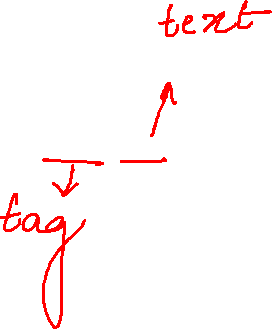 text
tag